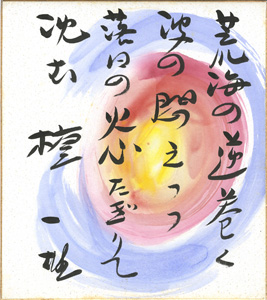 荒海の逆巻く
波の悶えつつ
落日の火心たぎりて
沈む 檀 一雄